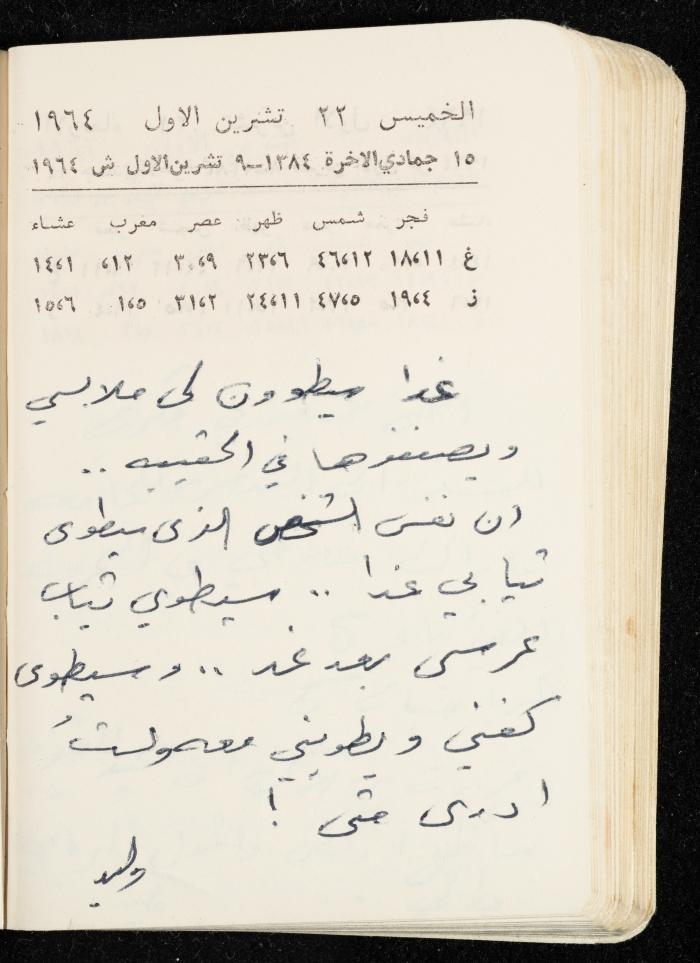 الخميس ٢٢ تشرين الاول ١٩٦٤
١٥ جمادي الاخرة ١٣٨٤ــ٩ تشرين الاول ش ١٩٦٤
فجر شمس ظهر عصر مغرب عشاء
غ ١٨،١١ ٤٦،١٢ ٢٣،٦ ٣٠،٩ ،١٢ ١٤،١
ز ١٩،٤ ٤٧،٥ ٢٤،١١ ٣١،٢ ١،٥ ١٥،٦
غدا سيطوون لي ملابسي
ويصففوها في الحقيبه ..
ان نفس الشخص الذى سيطوى
ثيابي غدا .. سيطوي ثياب
عرسى بعد غد .. وسيطوى
كفني ويطويني معه ولستُ
ادرى متى !
وليد